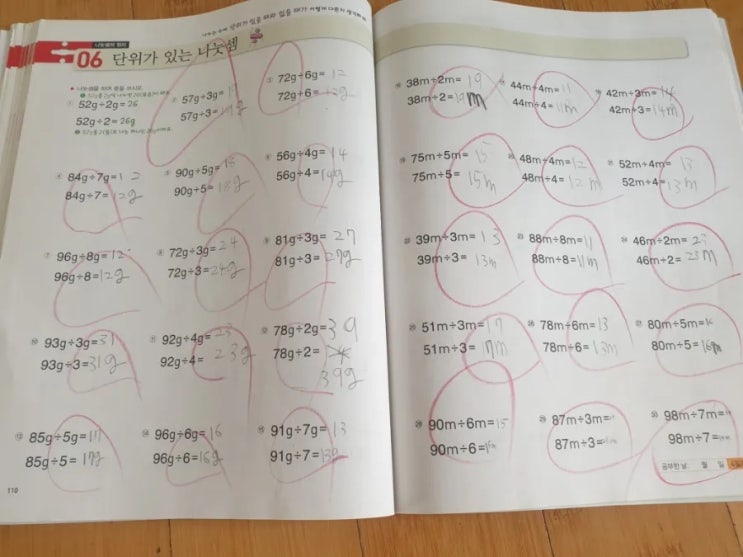 나눗셈의 원리
06 단위가 있는 나눗셈
나눗셈을 하여 몫을 쓰시오.
① 52g÷2g=26
52g÷2=26g
② 57g÷3g=19
57g÷3=19g
③ 72g÷6g=12
72g÷6=12g
④ 84g÷7g=12
84g÷7=12g
⑤ 90g÷5g=18
90g÷5=18g
⑥ 56g÷4g=14
56g÷4=14g
⑦ 96g÷8g=12
96g÷8=12g
⑧ 72g÷3g=24
72g÷3=24g
⑨ 81g÷3g=27
81g÷3=27g
⑩ 93g÷3g=31
93g÷3=31g
⑪ 92g÷4g=23
92g÷4=23g
⑫ 78g÷2g=39
78g÷2=
39g
⑬ 85g÷5g=17
85g÷5=17g
⑭ 96g÷6g=16
96g÷6=16g
⑮ 91g÷7g=13
91g÷7=13g
110
38m÷2m=19
38m÷2=19m
44m÷4m=11
44m÷4=11m
42m÷3m=14
42m÷3=14m
75m÷5m=15
75m÷5=15m
48m÷4m=12
48m÷4=12m
52m÷4m=13
52m÷4=13m
39m÷3m=13
39m÷3=13m
88m÷8m=11
88m÷8=11m
46m÷2m=23
46m÷2=23m
51m÷3m=17
51m÷3=17m
78m÷6m=13
78m÷6=13m
80m÷5m=16
80m÷5=16m
90m÷6m=15
90m÷6=15m
87m÷3m=
87m÷3=
98m÷7m=
98m÷7=
공부한 날 월 일